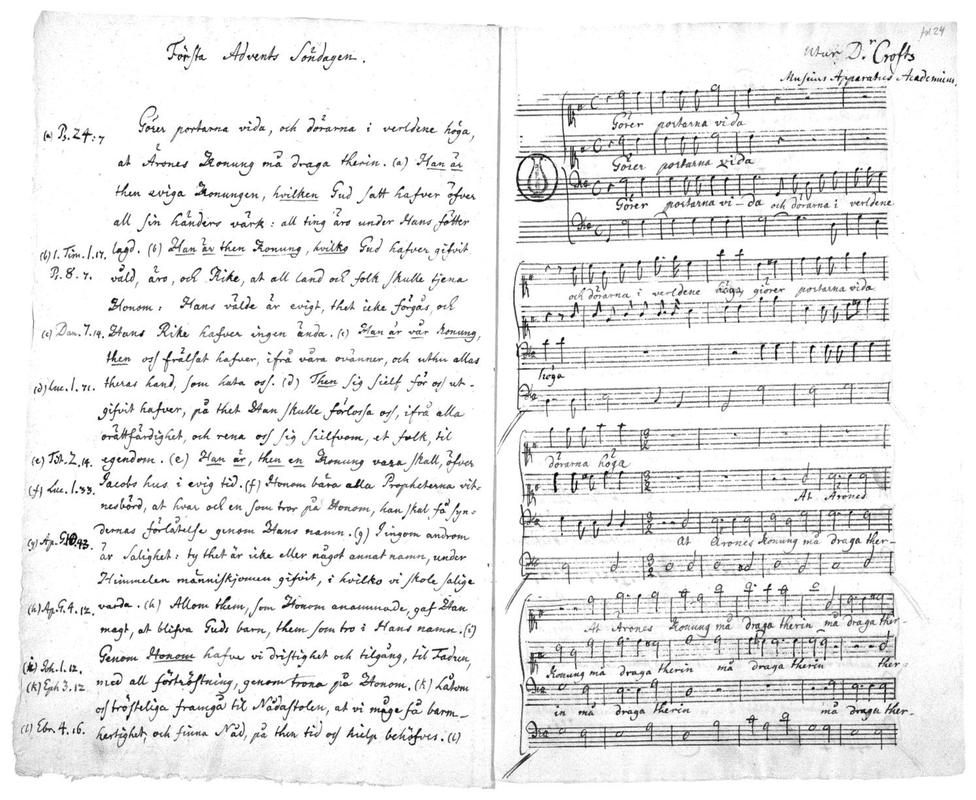 Första Advents Söndagen.
(a) Ps. 24:7 Görer portarna vida, och dörarna i verldene höga,
at Ärones Konung må draga therin. (a) Han är
then eviga Konungen, hvilken Gud satt hafver öfver
all sin händers värk: all ting äro under Hans fötter
(b) 1. Tim. 1.17. lagd. (b) Han är then Konung, hvilko Gud hafver gifvit
Ps. 8. 7. våld, äro, och Rike, at all land och folk skulle tjena
Honom: Hans välde är evigt, thet icke förgås, och
(c) Dan. 7.14. Hans Rike hafver ingen ända. (c) Han är vår Konung,
then oss frälsat hafver, ifrå våra ovänner, och uthu allas
(d) Luc. 1. 71. theras hand, som hata oss. (d) Then sig sielf för oss ut-
gifvit hafver, på thet Han skulle förlossa oss, ifrå alla
orättfärdighet, och rena oss sig sielfvom, et folk, til
(e) Tit. 2. 14. egendom. (e) Han är, then en Konung vara skall, öfver
(f) Luc. 1.33. Jacobs hus i evig tid. (f) Honom bära alla Propheterna vit-
nesbörd, at hvar och en som tror på Honom, han skal få syn-
dernas förlåtelse genom Hans namn. (g) Jngom androm
(g) Ap. G. 10.43. är Salighet: ty thet är icke eller något annat namn, under
Himmelen människjomen gifvit, i hvilko vi skole salige
(h) Ap. G. 4. 12. varda. (h) Allom them, som Honom anammade, gaf Han
magt, at blifva Guds barn, them som tro i Hans namn. (i)
(i) Joh. 1. 12. Genom Honom hafve vi dristighet och tilgång, til Fadren,
(k) Eph 3. 12 med all förtröstning, genom trona på Honom. (k) Låtom
oss trösteliga framgå til Nådastolen, at vi måge få barm-
(l) Ebr. 4. 16. hertighet, och finna Nåd, på then tid oss hielp behöfves. (l)
fol 24
Utur D.r Crofts
Musicus Apparatus Academicus.
Görer portarna vida
Görer portarna vida
Görer portarna vi-da och dörarna i verldene
och dörarna i verldene höga, giörer portarna vida
höga
dörarna höga
At Ärones
At Ärones Konung må draga ther-
At Ärones Konung må draga therin må draga ther-
Konung må draga therin må draga therin ther-
in må draga therin må draga ther-